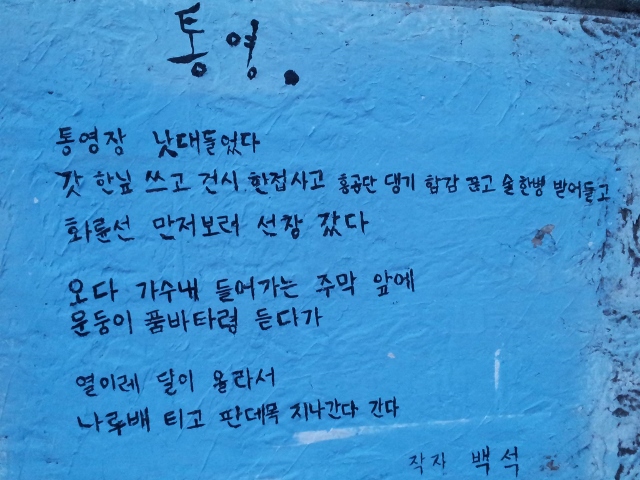 통영.
통영장 낫대들었다
갓 한닢 쓰고 건시 한접사고 홍공단 댕기 한감 끊고 술 한병 받어들고
화륜선 만저보려 선창 갔다
오다 가수내 들어가는 주막 앞에
문둥이 품바타령 듣다가
열이레 달이 올라서
나루배 타고 판데목 지나간다 간다
작자 백석